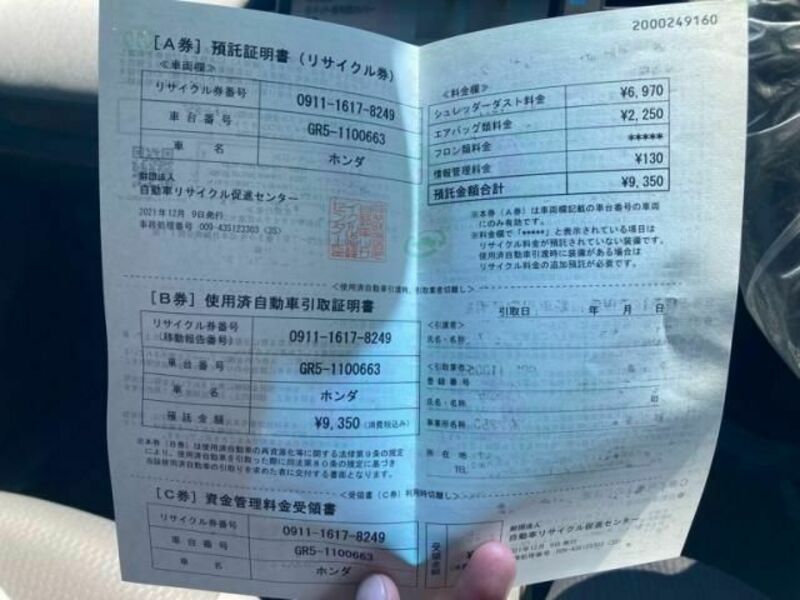 2000249160
［A券］預託証明書（リサイクル券）
≪車両欄≫
リサイクル券番号 0911-1617-8249
車台番号 GR5-1100663
車名 ホンダ
財団法人
自動車リサイクル促進センター
2021年12月 9日発行
事務処理番号 009-435123303 (3S)
≪料金欄≫
シュレッダーダスト料金 ¥6,970
エアバッグ類料金 ¥2,250
フロン類料金 *****
情報管理料金 ¥130
預託金額合計 ¥9,350
※本券（A券）は車両欄記載の車台番号の車両
にのみ有効です。
※料金欄で「*****」と表示されている項目は
リサイクル料金が預託されていない装備です。
使用済自動車引渡時に装備がある場合は
リサイクル料金の追加預託が必要です。
＜使用済自動車引渡時、引取業者切離し＞
［B券］使用済自動車引取証明書
リサイクル券番号
(移動報告番号) 0911-1617-8249
車台番号 GR5-1100663
車名 ホンダ
預託金額 ¥9,350 (消費税込み)
※本券（B券）は使用済自動車の再資源化等に関する法律第9条の規定
により、使用済自動車を引取った際に同法第80条の規定に基づき
当該使用済自動車の引取りを求めた者に交付する書面となります。
引取日 年 月 日
＜引渡者＞
氏名・名称
＜引取業者＞
登録番号
氏名・名称 印
事業所名称
所在地
TEL
＜受領書（C券）利用時切離し＞
［C券］資金管理料金受領書
リサイクル券番号 0911-1617-8249
車台番号 GR5-1100663
車名 ホンダ
受領金額 ¥
財団法人
自動車リサイクル促進センター
2021年12月 9日発行